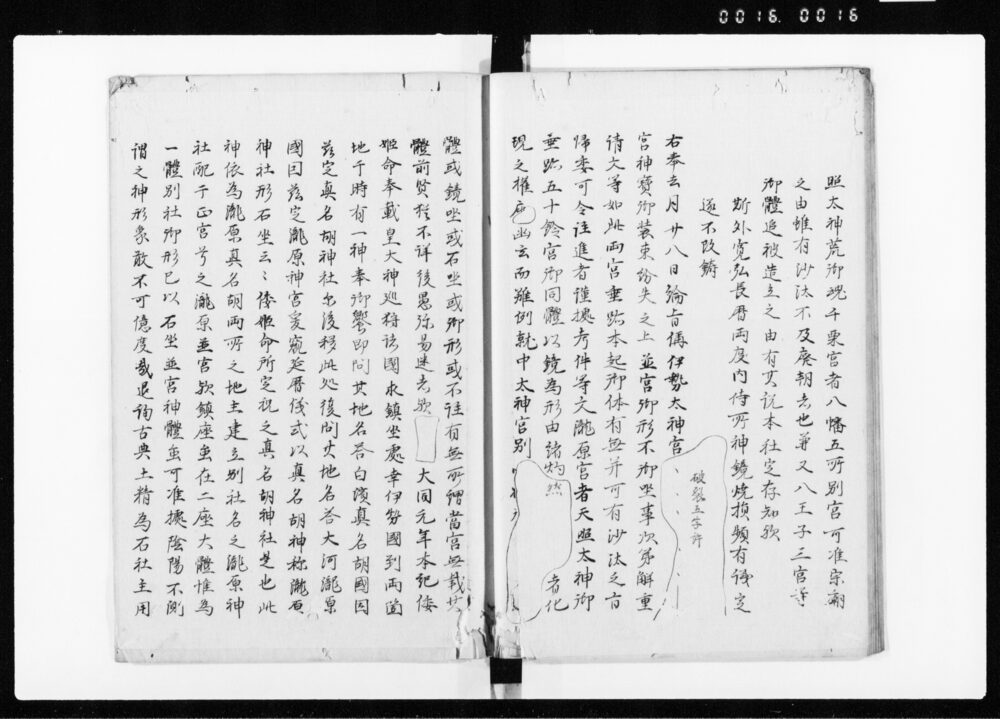 0016 0016
照太神荒御魂千栗宮者八幡五所別宮可准宗廟
之由雖有沙汰不及廃朝去也尊又八王子三宮等
御體追被造立之由有其説本社定存知歟
斯外寛弘長暦両度内侍所神鏡焼損頻有議定
遂不改鋳
右奉去月廿八日論旨偁伊勢太神宮
破裂五字許
宮神寶御装束紛失之上並宮御形不御坐事次第解重
請文等如此両宮垂跡本起御体有無并可有沙汰之旨
帰委可令注進者謹撿考件等文瀧原宮者天照太神御
垂跡五十鈴宮御同體以鏡為形由諸灼然者化
現之權 幽玄而難例就中太神宮別
體或鏡坐或石坐或御形或不注有無所謂當宮無載其
體前賢猶不詳後愚弥易迷者歟 大同元年本紀倭
姫命奉載皇大神廻狩諸國求鎮坐處幸伊勢國到両箇
地于時有一神奉御饗即問其地名答白濱真名胡國因
茲定真名胡神社尓後移此処復問其地名答大河瀧原
國因茲定瀧原神宮爰窺延暦儀式以真名胡神称瀧原
神社形石坐云々倭姫命所定祝之真名胡神社是也此
神依為瀧原真名胡両所之地主建立別社名之瀧原神
社配于正宮号之瀧原並宮歟鎮座虽在二座大體惟為
一體別社御形已以石坐並宮神體虽可准據陰陽不測
謂之神形象敢不可億度哉退詢古典土精為石社主用